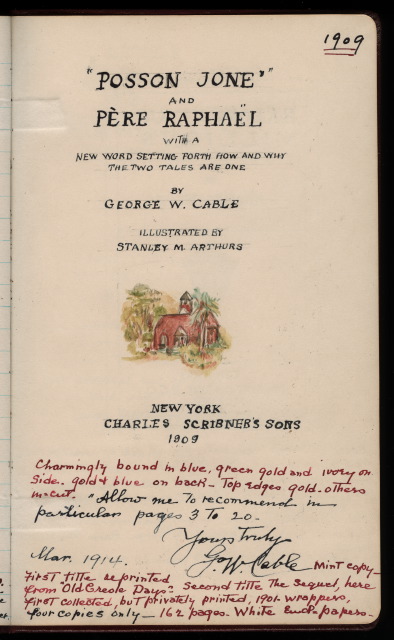 1909
"POSSON JONE'"
AND
PÈRE RAPHAËL
WITH A
NEW WORD SETTING FORTH HOW AND WHY
THE TWO TALES ARE ONE
BY
GEORGE W. CABLE
ILLUSTRATED BY
STANLEY M. ARTHURS
NEW YORK
CHARLES SCRIBNER'S SONS
1909
Charmingly bound in blue, green gold and ivory on
side. gold & blue on back - Top edges gold. others
uncut. "Allow me to recommend in
particular pages 3 to 20-
Yours truly
Mar. 1914. G.W. Cable Mint copy-
First title reprinted
from "Old Creole Days"- Second title the sequel, here
first collected, but privately printed, 1901. wrappers,
four copies only - 162 pages. White End-papers-